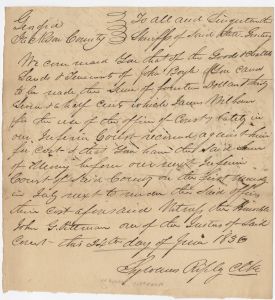 Georgia To all and Singular the
Jackson County Sheriffs of Said State Greeting
We command You that of the Goods & Chattles
Lands & Tenements of John Boyle You cause
to be made the Sum of fourteen Dollars thirty
Seven & half Cents which James Wilson
for the use of the officers of Court lately in
our Inferior Court recovered against him
for Cost & that You have the Said Sum
of Money before our next Inferior
Court for Said County on the first Monday
in July next to render the Said officers
their Cost aforesaid Witness the Honorable
John G. Pittman one of the Justices of Said
Court this 24th day of June 1836
Sylvanus Ripley Clk